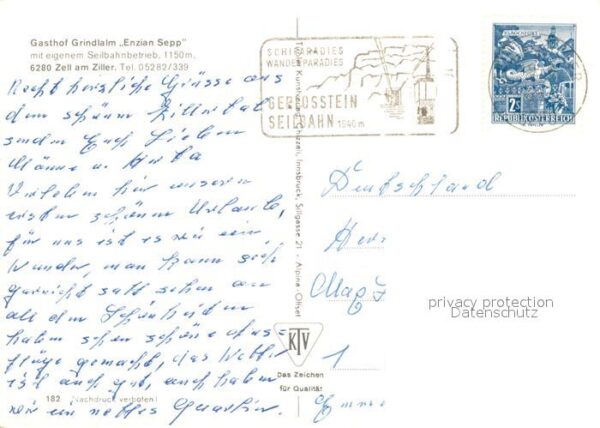 Gasthof Grindlalm „Enzian Sepp"
mit eigenem Seilbahnbetrieb, 1150m,
6280 Zell am Ziller, Tel. 05282/339
Recht herzliche Grüsse aus
dem schönen Zillertal
senden Euch Lieben
Männe u. Herta
Verleben hier unseren
ersten schönen Urlaub,
für uns ist es wie ein
Wunder, man kann sich
garnicht satt sehen an
all den Schönheiten
haben schon schöne Aus=
flüge gemacht, das Wetter
ist auch gut, auch haben
wir ein nettes Quartier.
182 (Nachdruck verboten)
SCHIPARADIES
WANDERPARADIES
GERLOSSTEIN
SEILBAHN 1640 m
2 S
REPUBLIK ÖSTERREICH
Tiroler Kunstverlag Chizzali, Innsbruck, Sillgasse 21 - Alpina-Offset
KTV
Das Zeichen
für Qualität
Deutschland
Herr
1
privacy protection
Datenschutz